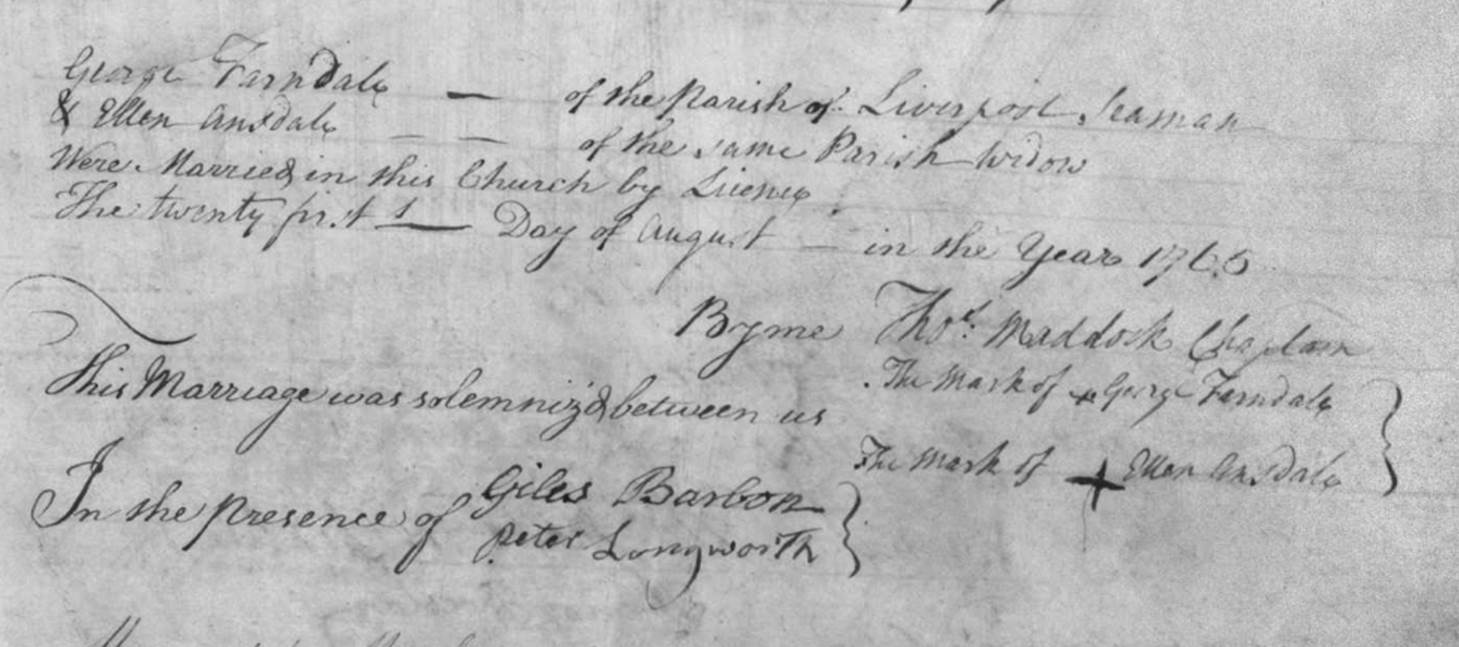 George Farndale — of the Parish of Liverpool Seaman
& Ellen Ansdale — — of the same Parish Widow
Were Married in this Church by Licence
The twenty first — Day of August — in the Year 1765
By me Thos. Maddock Chaplain
This Marriage was solemniz'd between us The Mark of + George Farndale
The Mark of + Ellen Ansdale
In the Presence of Giles Barbon
Peter Longworth